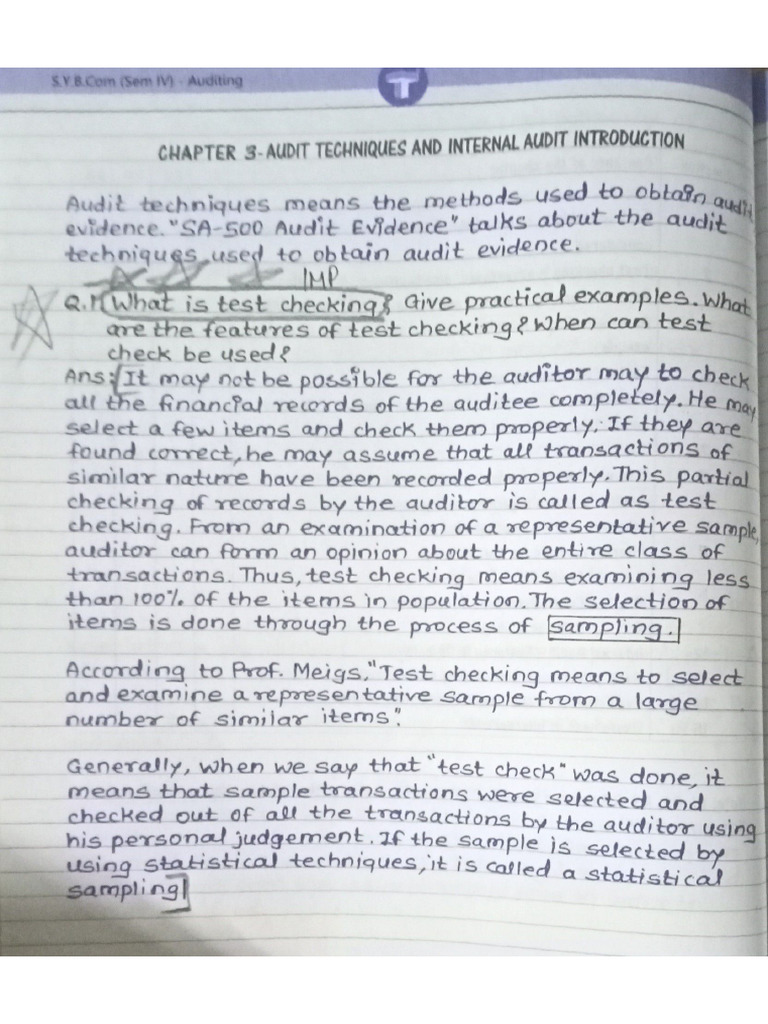 S.Y.B.Com (Sem IV) - Auditing
T
CHAPTER 3-AUDIT TECHNIQUES AND INTERNAL AUDIT INTRODUCTION
Audit techniques means the methods used to obtain audit
evidence. "SA-500 Audit Evidence" talks about the audit
techniques used to obtain audit evidence.
IMP
Q.1 What is test checking? Give practical examples. What
are the features of test checking? When can test
check be used?
Ans: It may not be possible for the auditor may to check
all the financial records of the auditee completely. He may
select a few items and check them properly. If they are
found correct, he may assume that all transactions of
similar nature have been recorded properly. This partial
checking of records by the auditor is called as test
checking. From an examination of a representative sample,
auditor can form an opinion about the entire class of
transactions. Thus, test checking means examining less
than 100% of the items in population. The selection of
items is done through the process of sampling.
According to Prof. Meigs, "Test checking means to select
and examine a representative sample from a large
number of similar items".
Generally, when we say that "test check" was done, it
means that sample transactions were selected and
checked out of all the transactions by the auditor using
his personal judgement. If the sample is selected by
using statistical techniques, it is called a statistical
sampling